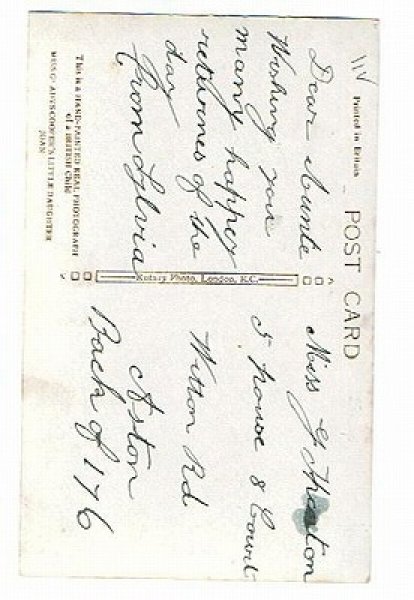 Printed in Britain
POST CARD
Dear Aunte
Wishing you
many happey
returnes of the
day
From Sylvia
THIS IS A HAND-PAINTED REAL PHOTOGRAPH
of a BRITISH Child
MISS GLADYS COOPER'S LITTLE DAUGHTER
JOAN
Rotary Photo, London, E.C.
Miss G
5 house 8 Court
Witton Rd
Aston
Back of 176